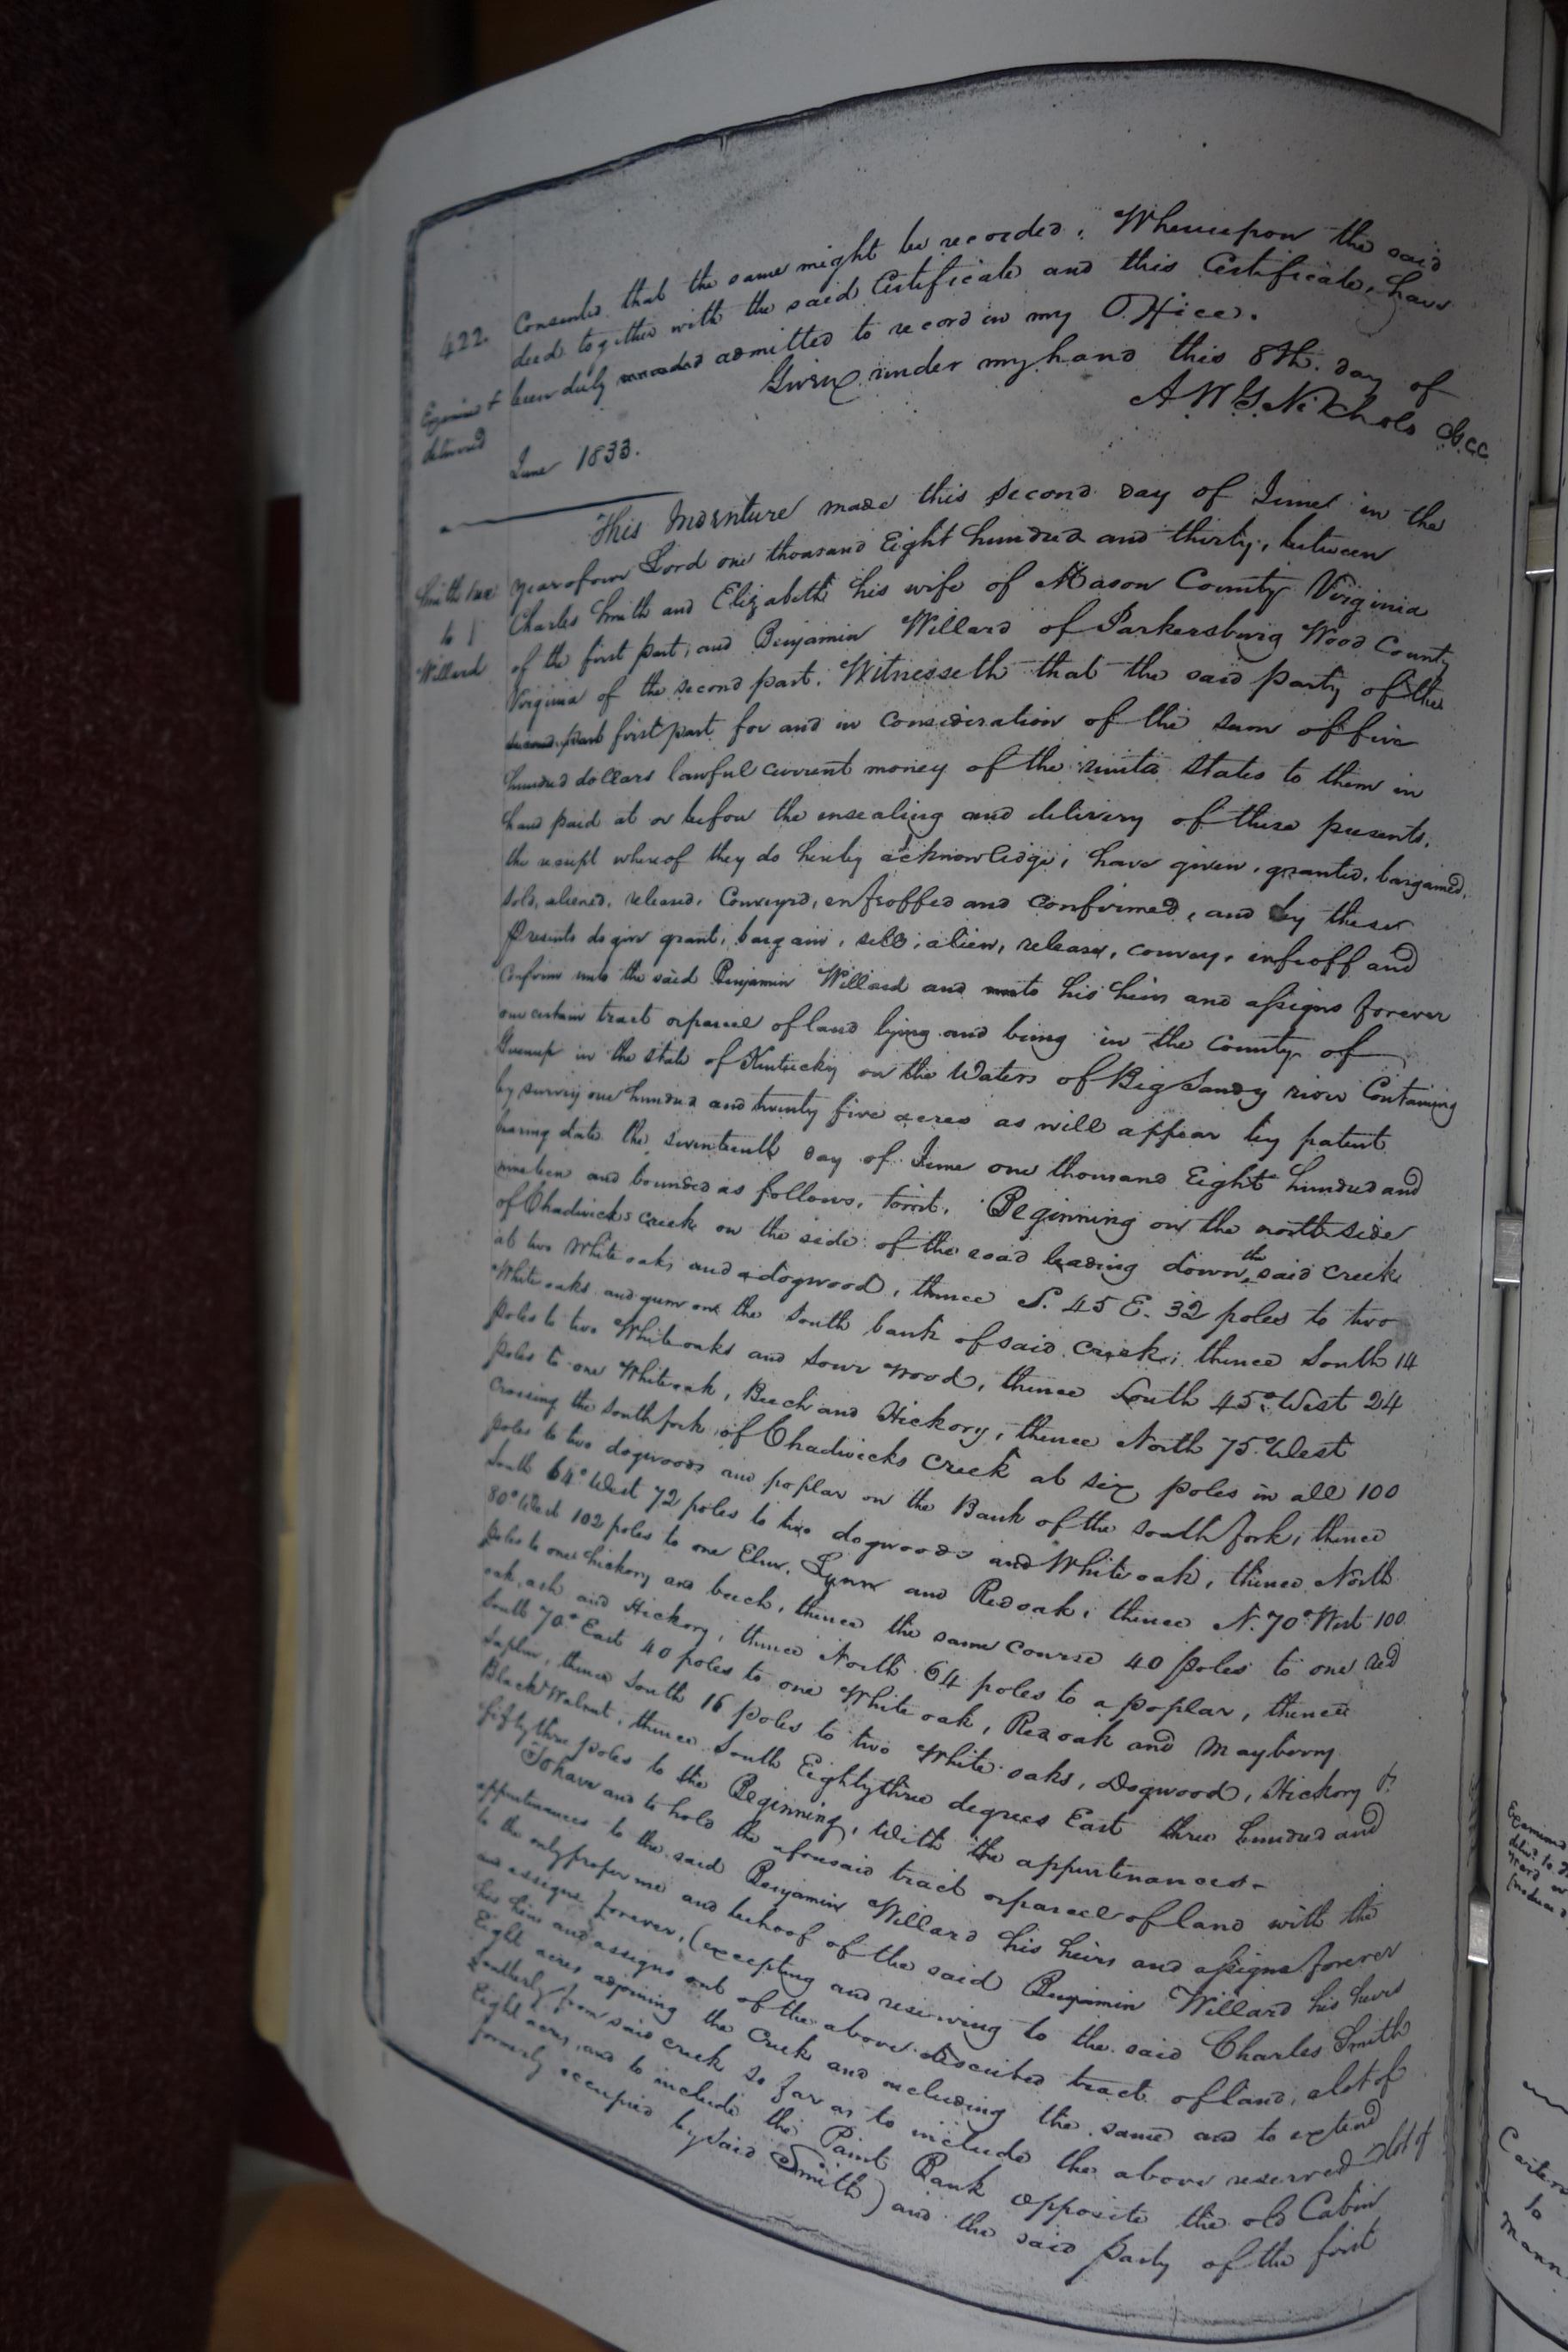 422.
Consented that the same might be recorded. Whereupon the said
deed together with the said Certificate and this Certificate, have
been duly recorded admitted to record in my Office.
Given under my hand this 8th. day of
June 1833.
A W G Nichols
Examined &
delivered
This Indenture made this second day of June in the
year of our Lord one thousand Eight hundred and thirty, between
Smith & ux
to
Willard
Charles Smith and Elizabeth his wife of Mason County Virginia
of the first part, and Benjamin Willard of Parkersburg Wood County
Virginia of the second part. Witnesseth that the said party of the
second part first part for and in consideration of the sum of five
hundred dollars lawful current money of the united States to them in
hand paid at or before the ensealing and delivery of these presents,
the receipt whereof they do hereby acknowledge, have given, granted, bargained,
sold, aliened, released, Conveyed, enfeoffed and confirmed, and by these
Presents do give grant, bargain, sell, alien, release, convey, enfeoff and
confirm unto the said Benjamin Willard and to his heirs and assigns forever
one certain tract or parcel of land lying and being in the County of
Greenup in the state of Kentucky on the Waters of Big Sandy river Containing
by survey one hundred and twenty five acres as will appear by patent
bearing date the seventeenth day of June one thousand Eight hundred and
nineteen and bounded as follows, towit. Beginning on the north side
of Chadwicks creek on the side of the road leading down the said creek
at two White oaks and a dogwood, thence S. 45 E. 32 poles to two
White oaks and gum on the South bank of said creek; thence South 14
poles to two White oaks and sour wood, thence South 45° West 24
poles to one White oak, Beech and Hickory, thence North 75° West
crossing the South fork of Chadwicks Creek at six poles in all 100
poles to two dogwoods and poplar on the Bank of the south fork; thence
South 64° West 72 poles to two dogwoods and White oak, thence North
80° West 102 poles to one Elm, Lynn and Red oak; thence N. 70° West 100
poles to one hickory and beech, thence the same course 40 poles to one red
oak, ash and Hickory, thence North 64 poles to a poplar, thence
South 70° East 40 poles to one White oak, Red oak and Mayberry
saplin, thence South 16 poles to two White oaks, Dogwood, Hickory &
Black Walnut, thence South Eighty three degrees East three hundred and
fifty three poles to the Beginning, With the appurtenances
To have and to hold the aforesaid tract or parcel of land with the
appurtenances to the said Benjamin Willard his heirs and assigns forever
to the only proper use and behoof of the said Benjamin Willard his heirs
and assigns forever, (excepting and reserving to the said Charles Smith
his heirs and assigns out of the above described tract of land, a lot of
Eight acres adjoining the Creek and including the same and to extend
southerly from said creek so far as to include the above reserved lot of
Eight acres, and to include the Paint Bank opposite the old Cabin
formerly occupied by said Smith) and the said party of the first
Examined
Carter
to
Mann